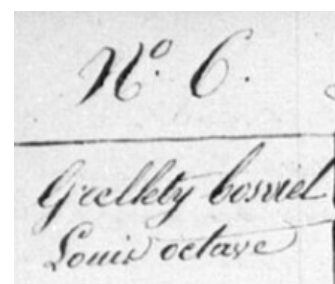 N° 6.
Grellety bosviel
Louis octave